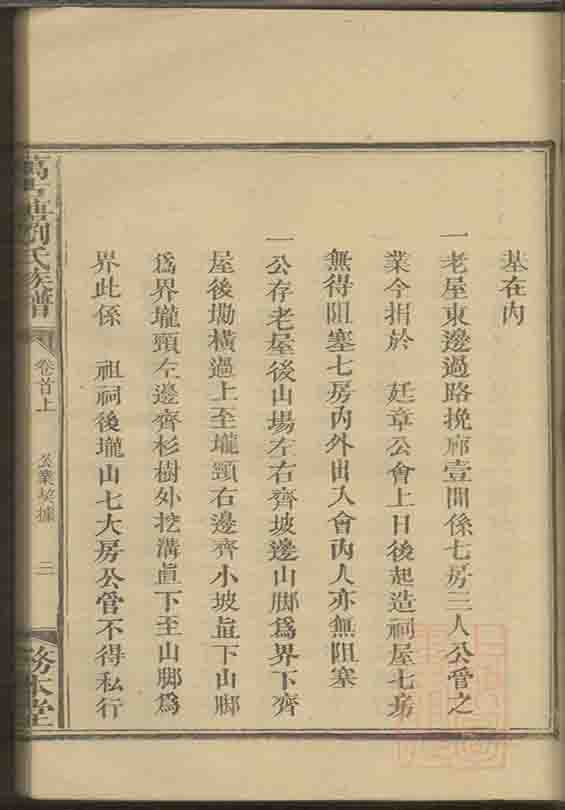 基在內
一老屋東邊過路挽廊壹間係七房三人公管之
業今捐於　廷章公會上日後起造祠屋七房
無得阻塞七房內外出入會內人亦無阻塞
一公存老屋後山場左右齊坡邊山脚爲界下齊
屋後墈橫過上至壠頸右邊齊小坡直下山脚
爲界壠頸左邊齊杉樹外挖溝直下至山脚爲
界此係　祖祠後壠山七大房公管不得私行
劉氏族譜
卷首上
公業契據
三
務本堂